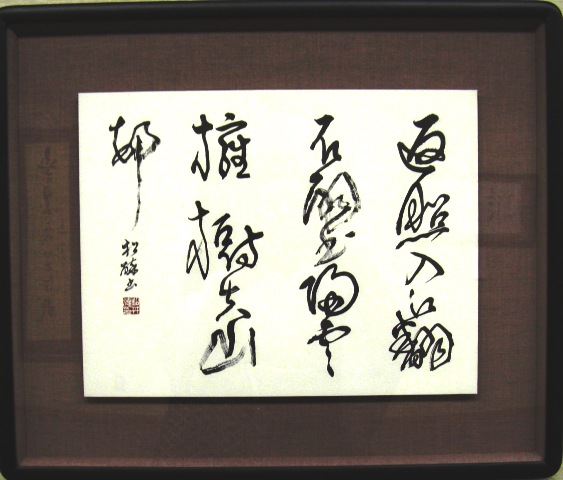 返照入江翻
石壁歸雲
擁樹失山
邨
松書